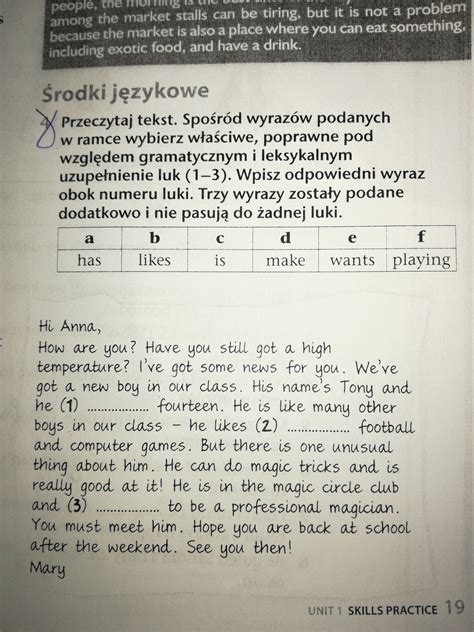 people, the morning is the best time
among the market stalls can be tiring, but it is not a problem
because the market is also a place where you can eat something,
including exotic food, and have a drink.
Środki językowe
4 Przeczytaj tekst. Spośród wyrazów podanych
w ramce wybierz właściwe, poprawne pod
względem gramatycznym i leksykalnym
uzupełnienie luk (1–3). Wpisz odpowiedni wyraz
obok numeru luki. Trzy wyrazy zostały podane
dodatkowo i nie pasują do żadnej luki.
a b c d e f
has likes is make wants playing
Hi Anna,
How are you? Have you still got a high
temperature? I've got some news for you. We've
got a new boy in our class. His name's Tony and
he (1) ............... fourteen. He is like many other
boys in our class – he likes (2) ............... football
and computer games. But there is one unusual
thing about him. He can do magic tricks and is
really good at it! He is in the magic circle club
and (3) ............... to be a professional magician.
You must meet him. Hope you are back at school
after the weekend. See you then!
Mary
UNIT 1 SKILLS PRACTICE 19